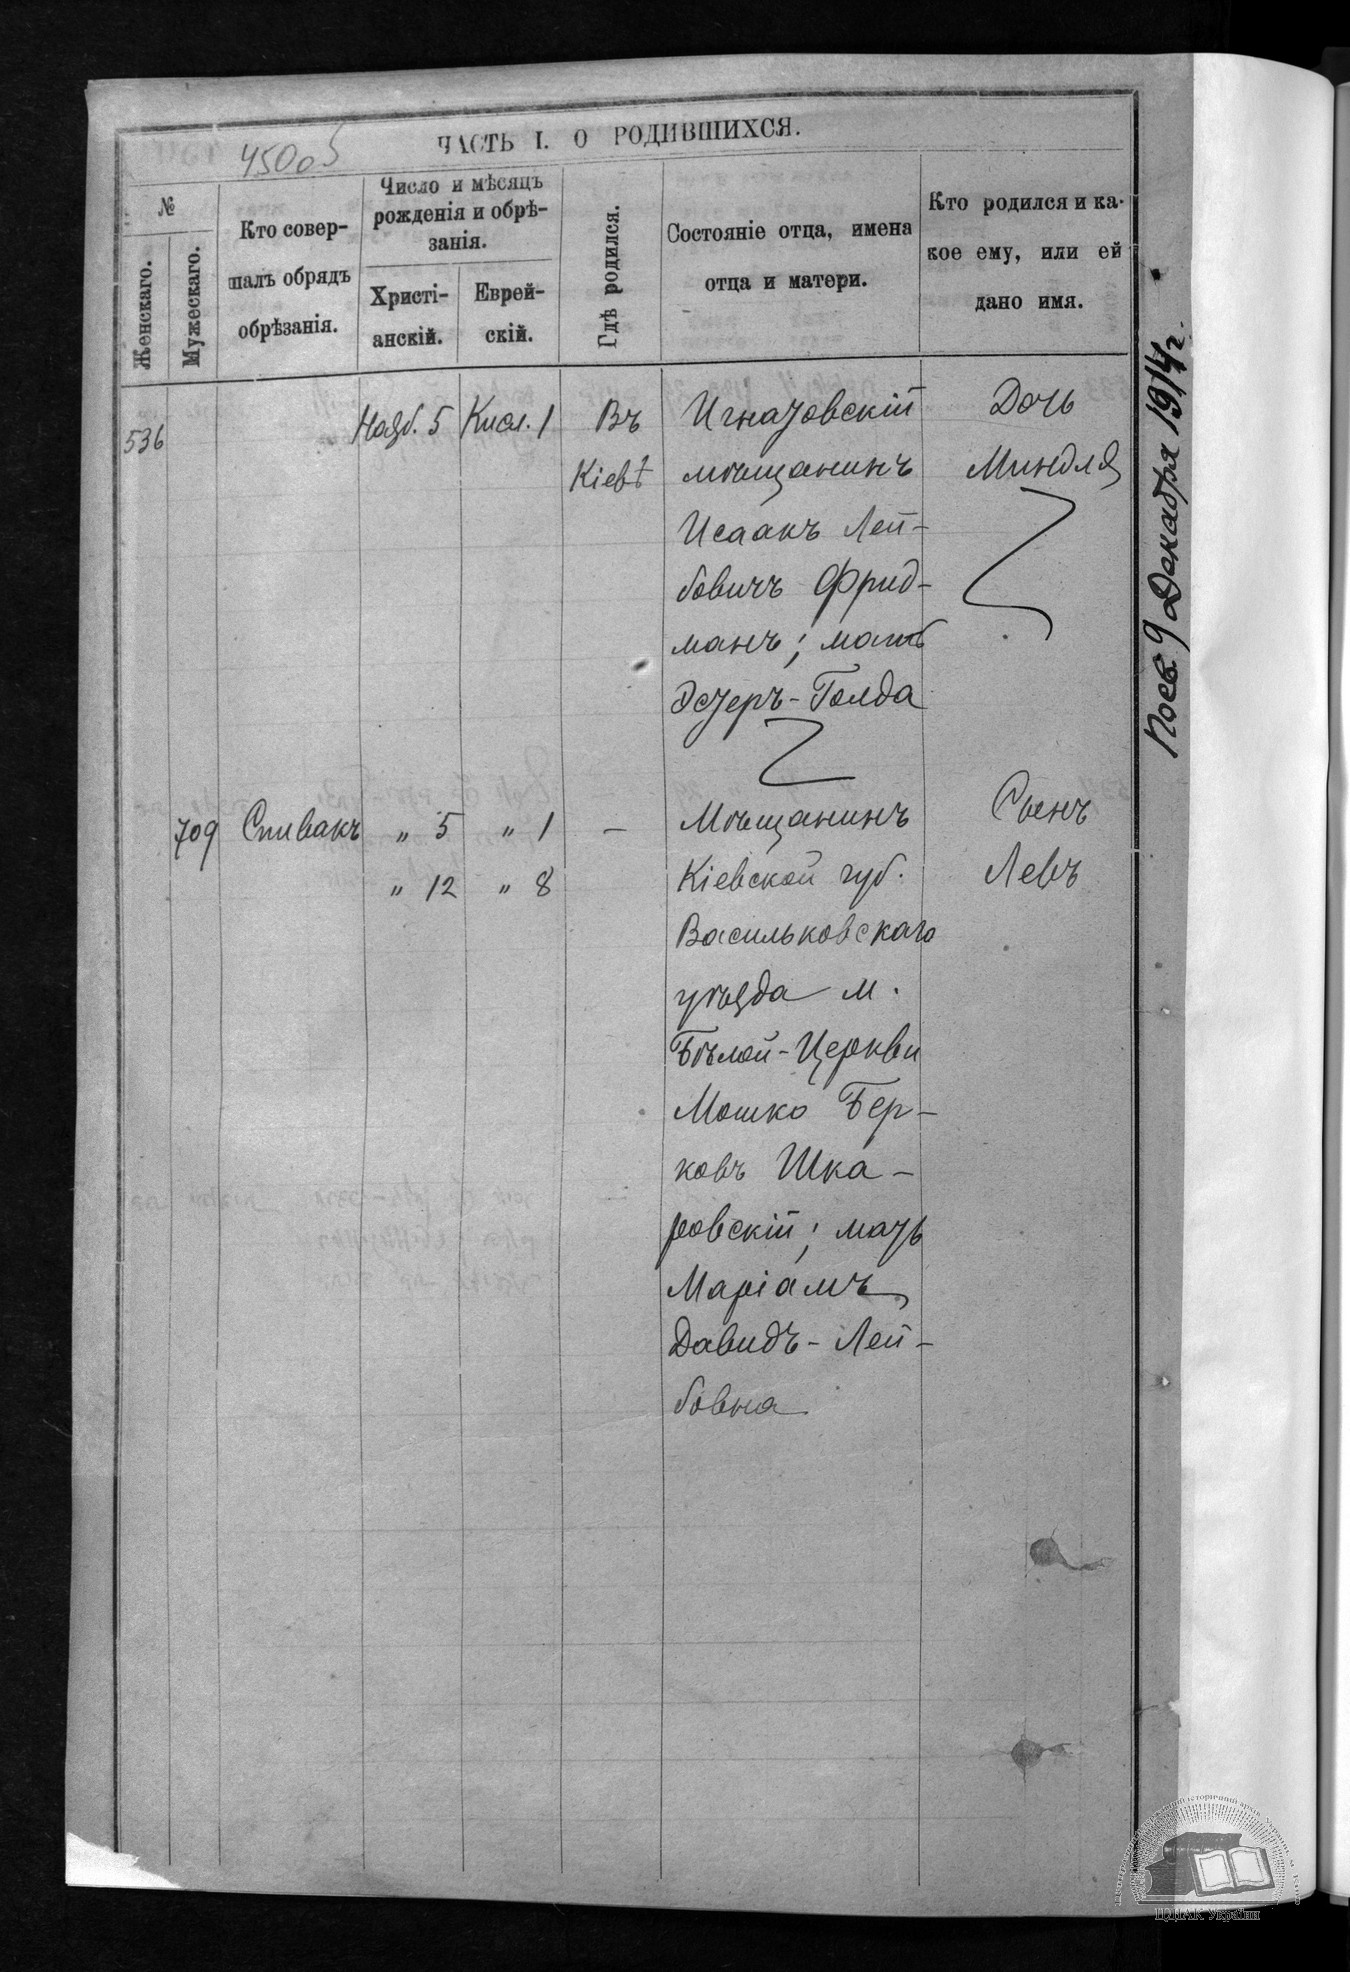 450об
ЧАСТЬ I. О РОДИВШИХСЯ.
№
Женскаго.
Мужескаго.
Кто совер-
шалъ обрядъ
обрѣзанія.
Число и мѣсяцъ
рожденія и обрѣ-
занія.
Христі-
анскій.
Еврей-
скій.
Гдѣ родился.
Состояніе отца, имена
отца и матери.
Кто родился и ка-
кое ему, или ей
дано имя.
536
Нояб. 5
Кисл. 1
Въ
Кіевѣ
Игнатовскій
мѣщанинъ
Исаакъ Лей-
бовичъ Фрид-
манъ; мать
Эстеръ-Голда
Дочь
Миндля
709
Спивакъ
„ 5
„ 12
„ 1
„ 8
—
Мѣщанинъ
Кіевской губ.
Васильковскаго
уѣзда м.
Бѣлой-Церкви
Мошко Бер-
ковъ Шка-
ровскій; мать
Маріамъ
Давидъ-Лей-
бовна
Сынъ
Левъ
9 Декабря 1914 г.
ЦДІАК України